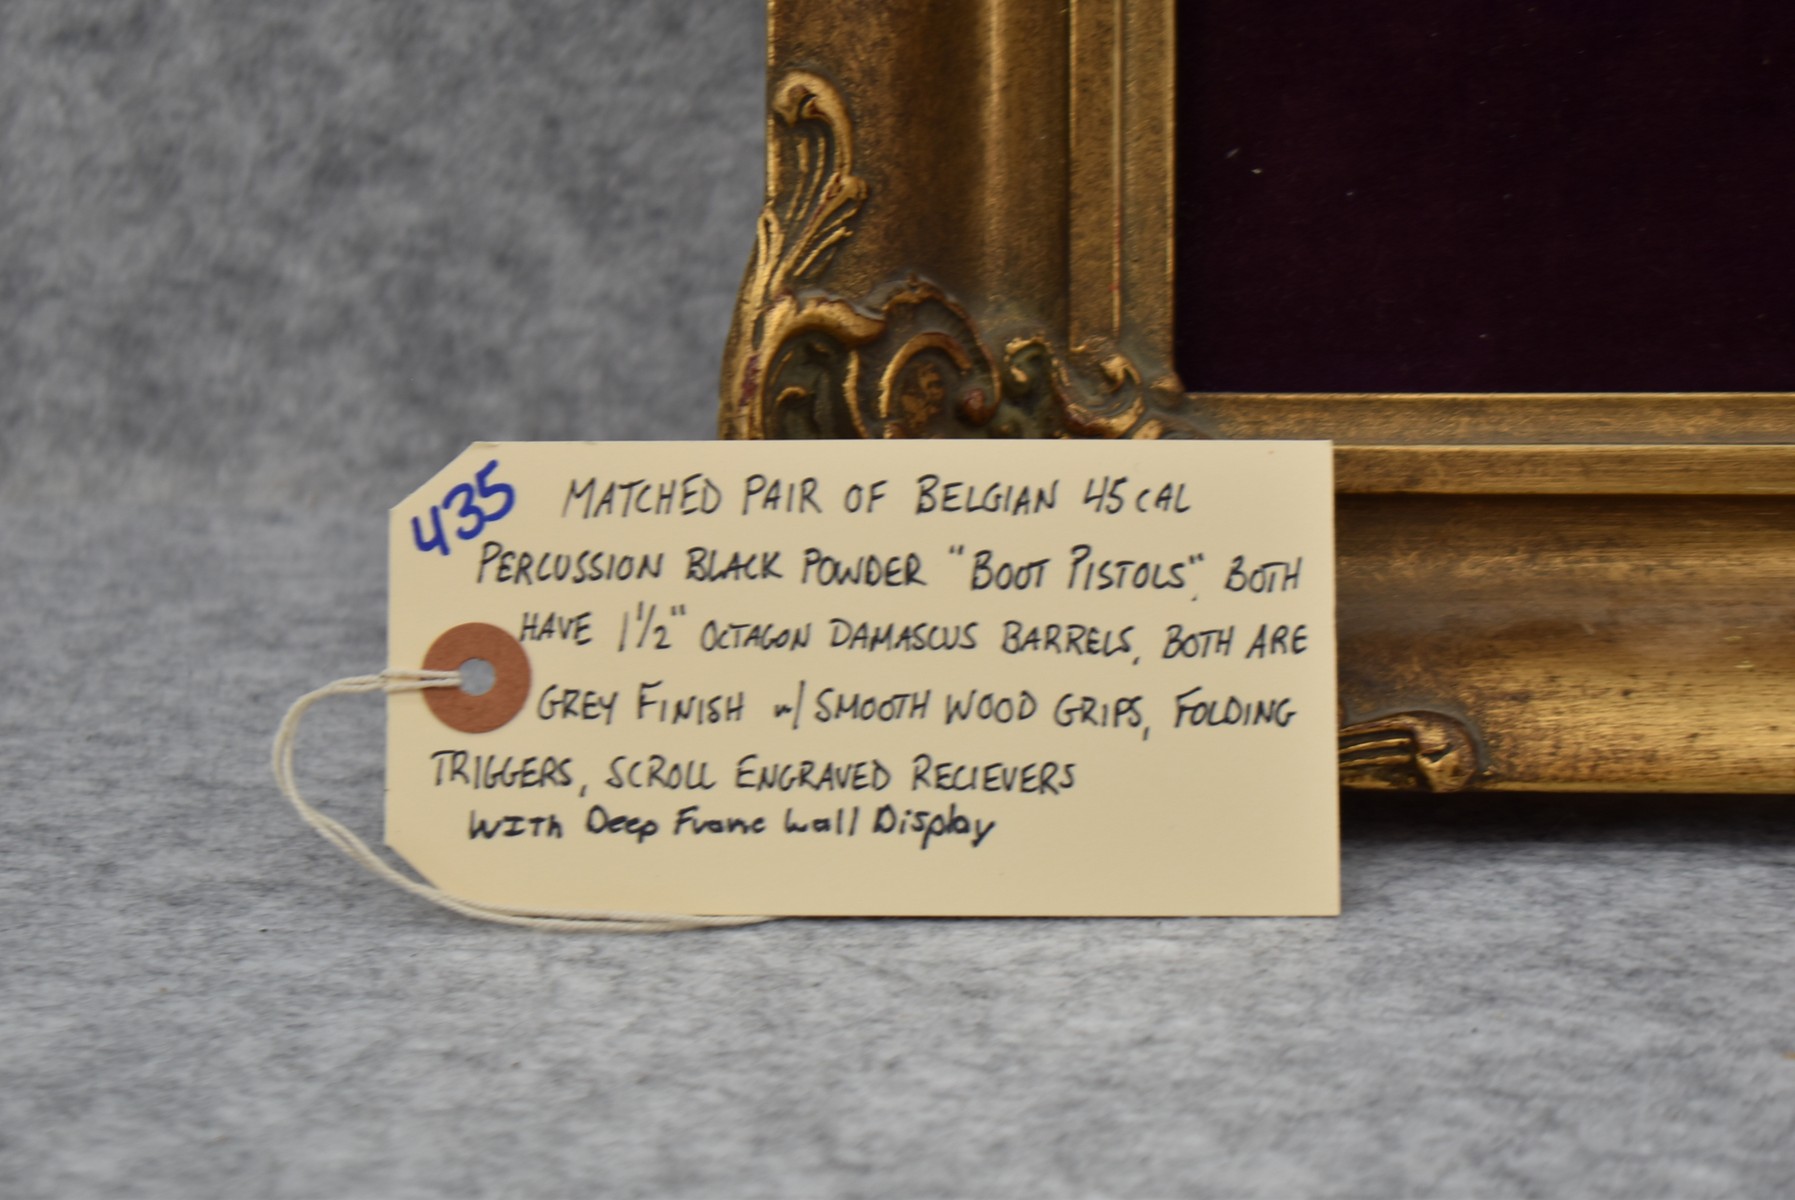 435
MATCHED PAIR OF BELGIAN 45 CAL
PERCUSSION BLACK POWDER "BOOT PISTOLS". BOTH
HAVE 1 1/2" OCTAGON DAMASCUS BARRELS, BOTH ARE
GREY FINISH w/ SMOOTH WOOD GRIPS, FOLDING
TRIGGERS, SCROLL ENGRAVED RECIEVERS
WITH Deep Frame Wall Display